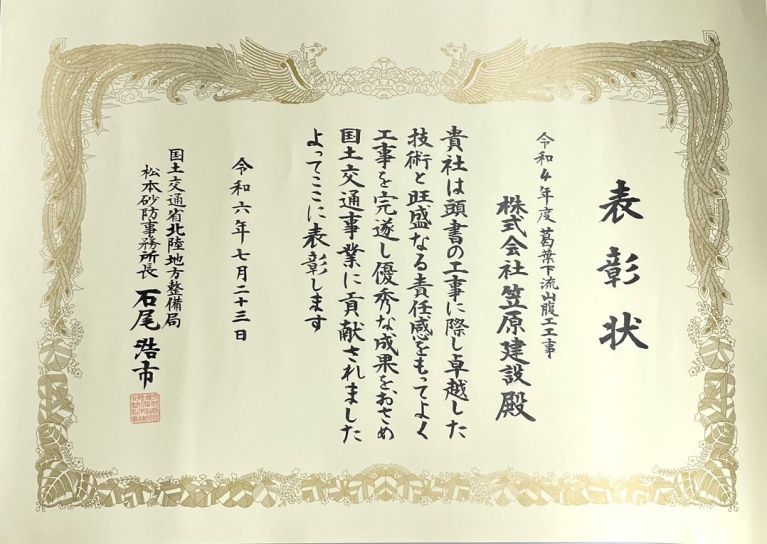 表彰状
令和4年度 葛葉下流山腹工工事
株式会社 笠原建設 殿
貴社は頭書の工事に際し卓越した
技術と旺盛なる責任感をもってよく
工事を完遂し優秀な成果をおさめ
国土交通事業に貢献されました
よってここに表彰します
令和六年七月二十三日
国土交通省北陸地方整備局
松本砂防事務所長 石尾浩市